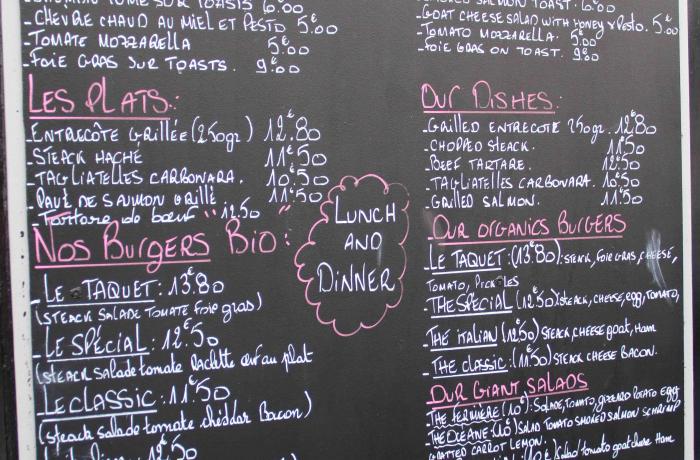 SUR TOASTS 6.00
-CHÈVRE CHAUD AU MIEL ET PESTO 5€00
-TOMATE MOZZARELLA 5€00
-FOIE GRAS SUR TOASTS. 9€00
LES PLATS:
-ENTRECÔTE GRILLÉE (250gr) 12€80
-STEACK HACHÉ 11€50
-TAGLIATELLES CARBONARA. 10€50
-PAVÉ DE SAUMON GRILLÉ 11€50
-Tartare de bœuf " 12€50 "
NOS BURGERS BIO:
-LE TAQUET: 13€80
(STEACK SALADE TOMATE Foie gras)
-LE SPÉCIAL: 12€50
(STEACK salade tomate Raclette œuf au plat
-LE CLASSIC: 11€50
(steack salade tomate chéddar Bacon)
12€50
LUNCH
AND
DINNER
SALMON TOAST. 6.00
-GOAT CHEESE SALAD WITH HONEY & Pesto. 5€00
-TOMATO MOZZARELLA. 5€00
-FOIE GRAS ON TOAST. 9€00
OUR DISHES:
-GRILLED ENTRECOTE 250gr. 12€80
-CHOPPED STEACK. 11€50
-BEEF TARTARE. 12€50
-TAGLIATELLES CARBONARA. 10€50
-GRILLED SALMON. 11€50
-OUR ORGANICS BURGERS
LE TAQUET: (13€80): STEACK, FOIE GRAS, CHEESE,
TOMATO, PICKLES
-THE SPÉCIAL (12€50) STEACK, CHEESE, EGG, TOMATO,
THE ITALIAN (12€50) STEACK CHEESE GOAT, HAM
-THE CLASSIC: (11€50) STEACK CHEESE BACON.
OUR GIANT SALADS
-THE FERMIÈRE (10€): SALADE, TOMATO, GIZZARD POTATO EGG
-THE OCÉANE (10€) SALAD TOMATO SMOKED SALMON SCHRIMP
GRATTED CARROT LEMON.
Salad tomato goat cheese Ham